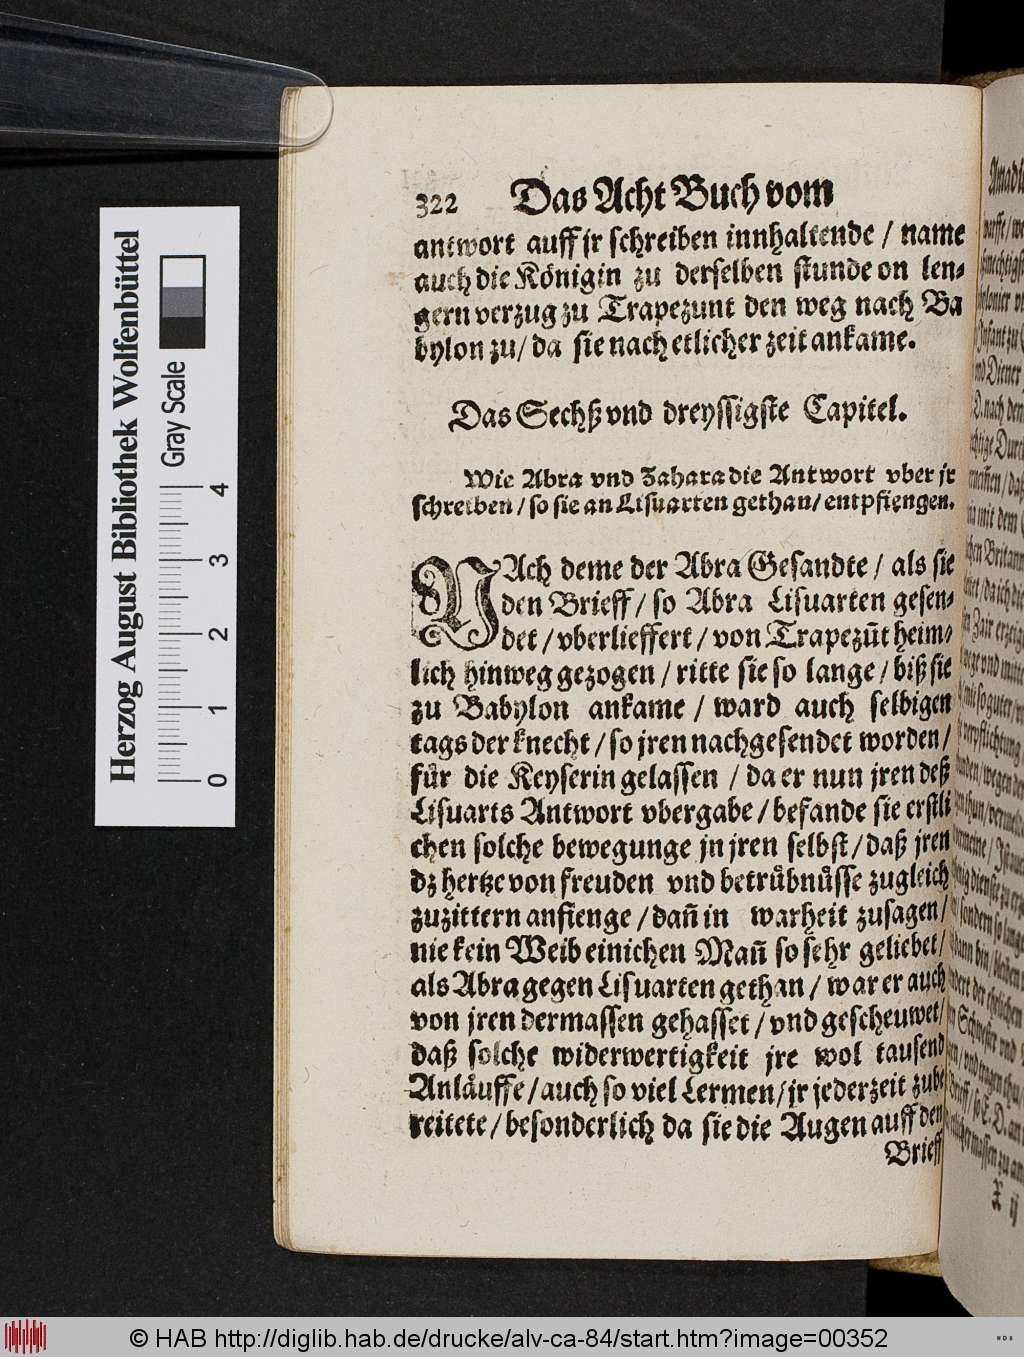 322 Das Acht Buch vom
antwort auff jr schreiben innhaltende / name
auch die Königin zu derselben stunde on len-
gern verzug zu Trapezunt den weg nach Ba
bylon zu / da sie nach etlicher zeit ankame.
Das Sechß vnd dreyssigste Capitel.
Wie Abra vnd Zahara die Antwort vber jr
schreiben / so sie an Lisuarten gethan / entpfiengen.
NAch deme der Abra Gesandte / als sie
den Brieff / so Abra Lisuarten gesen-
det / vberlieffert / von Trapezūt heim-
lich hinweg gezogen / ritte sie so lange / biß sie
zu Babylon ankame / ward auch selbigen
tags der knecht / so jren nachgesendet worden /
für die Keyserin gelassen / da er nun jren deß
Lisuarts Antwort vbergabe / befande sie erstli
chen solche bewegunge jn jren selbst / daß jren
dz hertze von freuden vnd betrübnüsse zugleich
zuzittern anfienge / dañ in warheit zusagen /
nie kein Weib einichen Mañ so sehr geliebet /
als Abra gegen Lisuarten gethan / war er auch
von jren dermassen gehasset / vnd gescheuwet /
daß solche widerwertigkeit jre wol tausend
Anläuffe / auch so viel Lermen / jr jederzeit zube
reitete / besonderlich da sie die Augen auff den
Brieff
X ij
Herzog August Bibliothek Wolfenbüttel
Gray Scale
0 1 2 3 4
© HAB http://diglib.hab.de/drucke/alv-ca-84/start.htm?image=00352